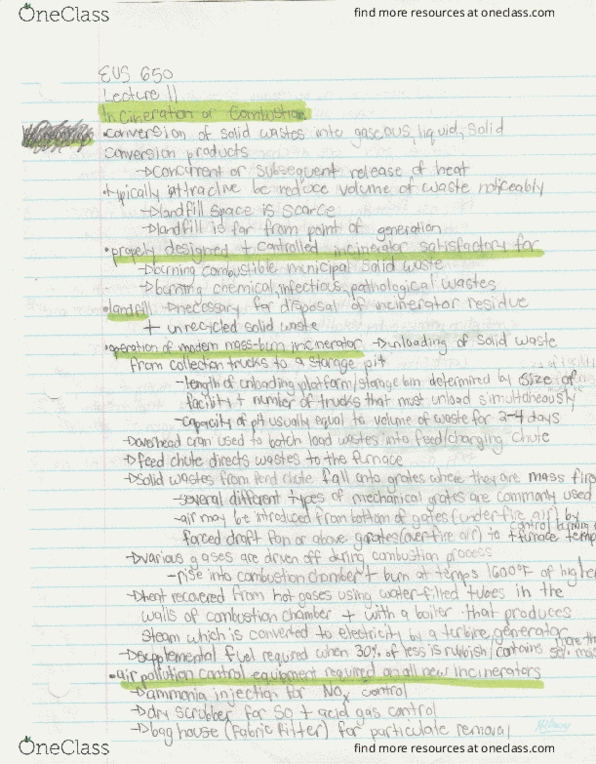 OneClass
find more resources at oneclass.com
EUS 650
Lecture 11
Incineration or Combustion
•conversion of solid wastes into gaseous, liquid, solid
conversion products
→concurrent or subsequent release of heat
•typically attractive bc reduce volume of waste noticeably
→landfill space is scarce
→landfill is far from point of generation
•properly designed + controlled incinerator satisfactory for
→burning combustible municipal solid waste
→burning chemical, infectious, pathological wastes
•landfill →necessary for disposal of incinerator residue
+ unrecycled solid waste
•operation of modern mass-burn incinerator →unloading of solid waste
from collection trucks to a storage pit
-length of unloading platform/storage bin determined by size of
facility + number of trucks that must unload simultaneously
-capacity of pit usually equal to volume of waste for 2-4 days
→overhead cran used to batch load wastes into feed/charging chute
→feed chute directs wastes to the furnace
→solid wastes from feed chute fall onto grates where they are mass fire
-several different types of mechanical grates are commonly used
-air may be introduced from bottom of gates (under-fire air) by
forced draft fan or above grates (over-fire air) to control burning + furnace temp
→various gases are driven off during combustion process
-rise into combustion chamber + burn at temps 1600°F of higher
→heat recovered from hot gases using water-filled tubes in the
walls of combustion chamber + with a boiler that produces
steam which is converted to electricity by a turbine generator
→supplemental fuel required when 30% of less is rubbish/contains more tha 50% mois
•air pollution control equipment required on all new incinerators
→ammonia injection for NOx control
→dry scrubber for SO + acid gas control
→bag house (fabric filter) for particulate removal
OneClass
find more resources at oneclass.com